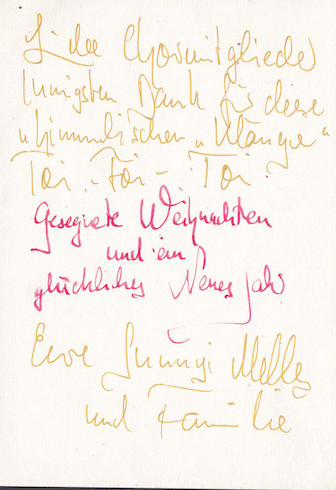 Liebe Chormitglieder
Innigsten Dank für diese
„himmlischen" Klänge"
Toi - Toi - Toi
Gesegnete Weihnachten
und ein
glückliches Neues Jahr
Eure Sunnyi Melles
und Familie